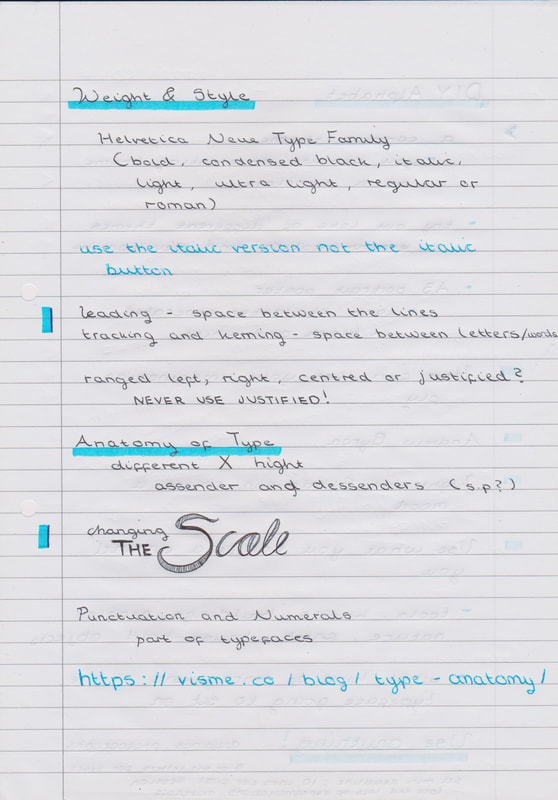 Weight & Style
Helvetica Neue Type Family
(bold, condensed black, italic,
light, ultra light, regular or
roman)
use the italic version not the italic
button
leading - space between the lines
tracking and kerning - space between letters/words
ranged left, right, centred or justified?
NEVER USE JUSTIFIED!
Anatomy of Type
different X hight
assender and dessenders (s.p?)
changing
THE Scale
Punctuation and Numerals
part of typefaces
https://visme.co/blog/type-anatomy/